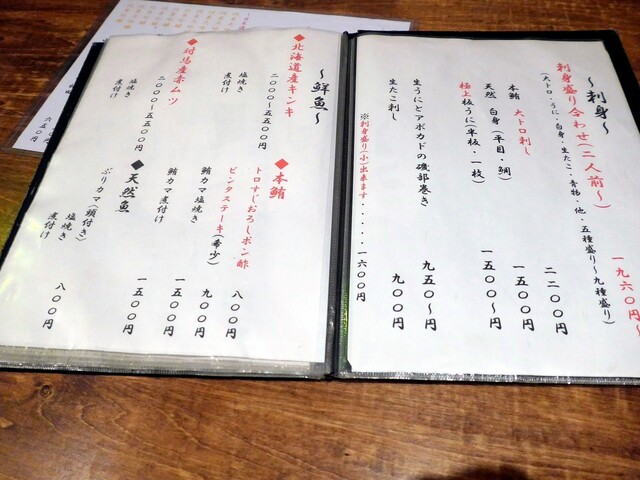 ～刺身～
刺身盛り合わせ(二人前～)
一九六〇円～
(大トロ・うに・白身・生たこ・青物・他・五種盛り～九種盛り)
大トロ刺し
二二〇〇円
本鮪
一五〇〇円
天然 白身(平目・鯛)
一五〇〇～
極上板うに(半板・一枚)
生うにとアボカドの磯部巻き
九五〇～円
生たこ刺し
九〇〇円
※刺身盛り(小)出来ます・・・・・一六〇〇円
～鮮魚～
◆北海道産キンキ
二〇〇〇～五五〇〇円
塩焼き
煮付け
◆対馬産赤ムツ
二〇〇〇～五五〇〇円
塩焼き
煮付け
◆本鮪
トロすじおろしポン酢
八〇〇円
ビンタステーキ(希少)
九〇〇円
鮪カマ塩焼き
一五〇〇円
鮪カマ煮付け
一五〇〇円
◆天然魚
ぶりカマ(頭付き)
塩焼き
煮付け
八〇〇円
六五〇円